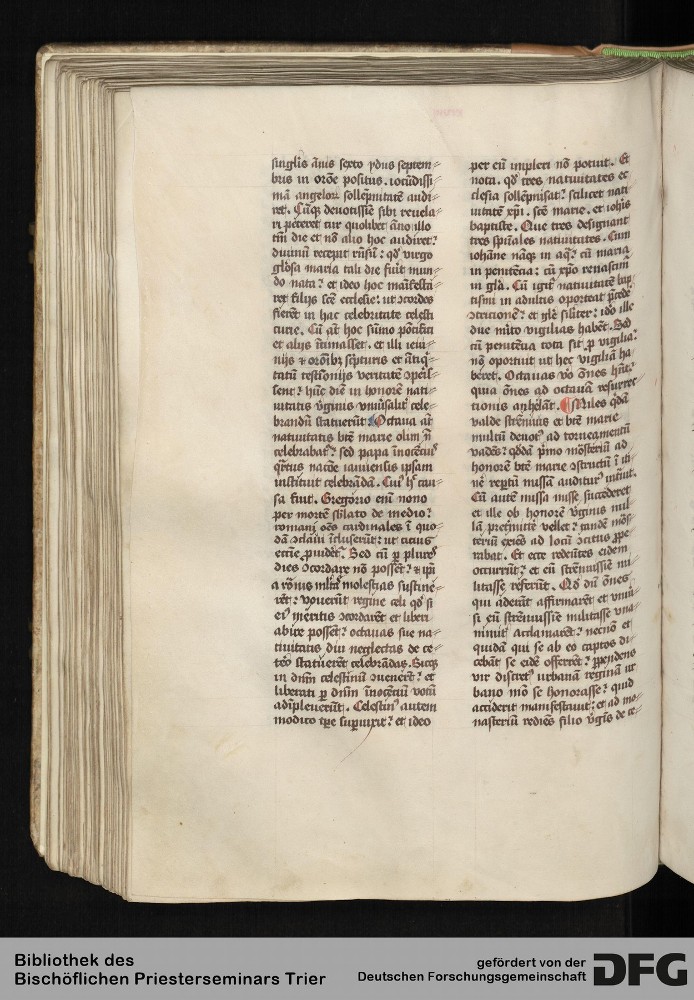 singlis ānis sexto ydus septem⸗
bris in orōe positus. iocūdissi⸗
mā angeloꝝ sollēpnitatē audi⸗
ret. Cūqꝫ deuotissīe sibi reuela⸗
ri peteret cur quolibet āno illo
tm̄ die et nō alio hoc audiret?
diuinū recepit rn̄sū: qď virgo
gl̄osa maria tali die fuit mun⸗
do nata? et ideo hoc maīfesta⸗
ret filijs sc̄e ecclesie: ut ꝯcordes
fierēt in hac celebritate celesti
curie. Cū aūt hoc sūmo pōtifici
et alijs ītimasset. et illi ieiu⸗
nijs ⁊ orōibꝫ sc̄pturis et ātiqꝰ⸗
tatū testīonijs veritatē ꝯperis⸗
sent? hūc diē in honorē nati⸗
uitatis v̄ginis vniu̓salit̓ cele⸗
brandū statuerūt: Octaua aūt
natiuitatis btē marie olim nō
celebrabat̉? sed papa inocēciꝰ
qr̄tus nacōe ianuensis ipsam
instituit celebrādā. Cuiꝰ hͨ cau⸗
sa fuit. Gregorio enī nono
per mortē sb̓lato de medio?
romani oēs cardinales ī quo⸗
dā ꝯclaui īcluserūt: ut cicius
ecc̄ie ꝓuidēt̉. Sed cū ꝑ plures
dies ꝯcordare nō possēt? ⁊ ip̄i
a rōīs mltas molestias sustine⸗
rēt: vouerūt regine celi qď si
eiꝰ meritis ꝯcordarēt et liberi
abire possēt? octauas sue na⸗
tiuitatis diu neglectas de ce⸗
tēo statuerēt celebrādas. Sicqꝫ
in dn̄m celestinū ꝯuenerēt? et
liberati ꝑ dn̄m inocētiū votū
adīpleuerūt. Celestinꝰ autem
modico tp̄e suꝑuixit? et ideo
per eū impleri nō potuit. Et
nota. qď tres natiuitates ec⸗
clesia sollēpnisat? scilicet nati⸗
uitatē xp̄i. sc̄e marie. et ioh̄is
baptiste. Que tres designant
tres sp̄uales natiuitates. Cum
iohāne nāqꝫ in aq̄? cū maria
in penitēcia: cū xp̄o renascim̄
in gl̄a. Cū igit̉ natiuitatē bap⸗
tismi in adultis oporteat p̄cede
ꝯtricionē? et gl̄e sil̄iter: iďo ille
due mīto vigilias habēt. Sed
cū penitēcia tota sit ꝓ vigilia?
nō oportuit ut hec vigiliā ha⸗
beret. Octauas v̓o ōnes hn̄t?
quia ōnes ad octauā resurrec⸗
tionis anhelāt. Miles qdā
valde strēnuus et btē marie
multū deuotꝰ ad torneamentū
vadēs? qdā p̄mo mōsteriū ad
honorē btē marie ꝯstructū ī iti⸗
nē reptū missā auditurꝰ intuit.
Cū autē missa misse succederet
et ille ob honorē v̄ginis nul⸗
lā p̄termitē vellet? tandē mōs⸗
teriū exiēs ad locū ꝯcitus ꝓpe⸗
rabat. Et ecce redeūtes eidem
occurrūt? et eū strēnuissīe mi⸗
litasse referūt. Qď dū ōnes
qui aderāt affirmarēt et vniu̓⸗
si eū strēnuissīe militasse vna⸗
nimit̓ acclamarēt? necnō et
quidā qui se ab eo captos di⸗
cebāt se eidē offerrēt? ꝑpendens
vir discretꝰ urbanā reginā ur⸗
bano mō se honorasse? quid
acciderit manifestauit: et ad mo⸗
nasteriū rediēs filio v̄gīs de ce⸗
Bibliothek des
Bischöflichen Priesterseminars Trier
gefördert von der
Deutschen Forschungsgemeinschaft
DFG